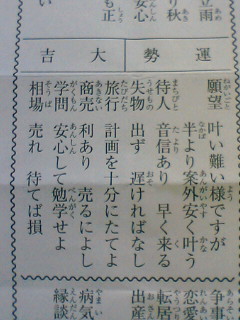 立雨
り秋
安心
も正
運勢
大吉
願望 叶い難い様ですが
半より案外安く叶う
待人 音信あり 早く来る
失物 出ず 遅ければなし
旅行 計画を十分にたてよ
商売 利あり 売るによし
学問 安心して勉学せよ
相場 売れ 待てば損
争事
恋愛
転居
出産
病気
縁談